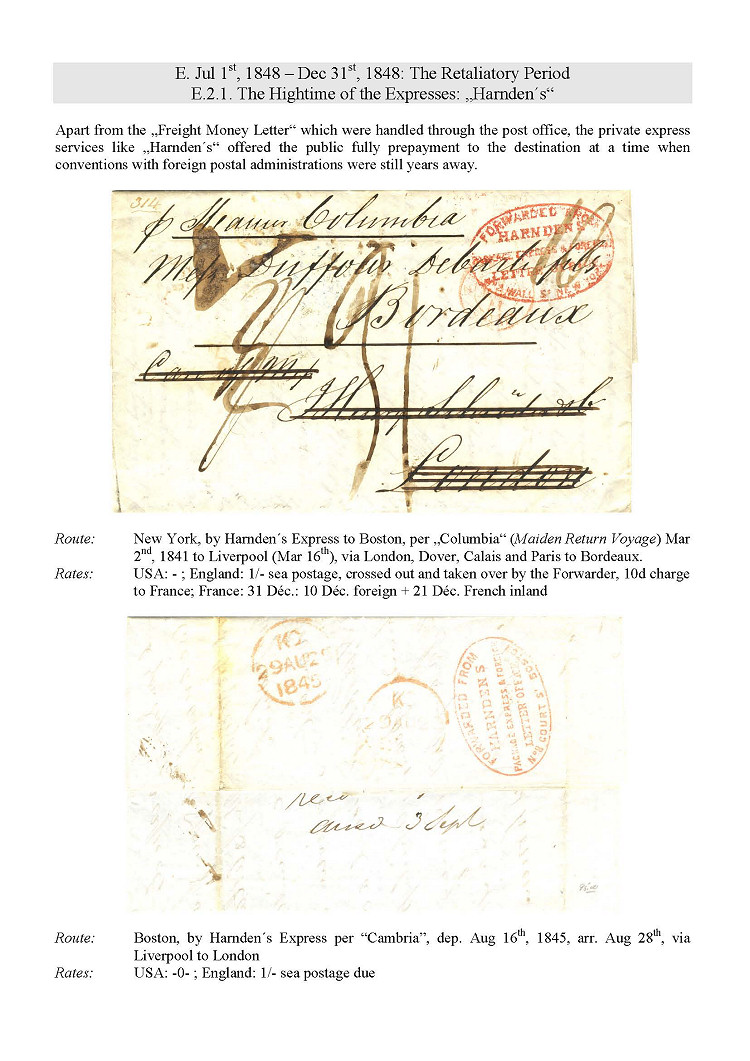 E. Jul 1st, 1848 – Dec 31st, 1848: The Retaliatory Period
E.2.1. The Hightime of the Expresses: „Harnden´s“
Apart from the „Freight Money Letter“ which were handled through the post office, the private express
services like „Harnden´s“ offered the public fully prepayment to the destination at a time when
conventions with foreign postal administrations were still years away.
314
p Steamer Columbia
FORWARDED FROM
HARNDEN'S
PACKAGE EXPRESS & FOREIGN
LETTER OFFICE
WALL St NEW YORK
Mess
Bordeaux
London
Route: New York, by Harnden´s Express to Boston, per „Columbia“ (Maiden Return Voyage) Mar
2nd, 1841 to Liverpool (Mar 16th), via London, Dover, Calais and Paris to Bordeaux.
Rates: USA: - ; England: 1/- sea postage, crossed out and taken over by the Forwarder, 10d charge
to France; France: 31 Déc.: 10 Déc. foreign + 21 Déc. French inland
K2
29AU29
1845
K
FORWARDED FROM
HARNDEN'S
PACKAGE EXPRESS & FOREIGN
LETTER OFFICE
No 8 COURT St BOSTON
3 Sept.
Route: Boston, by Harnden´s Express per “Cambria”, dep. Aug 16th, 1845, arr. Aug 28th, via
Liverpool to London
Rates: USA: -0- ; England: 1/- sea postage due